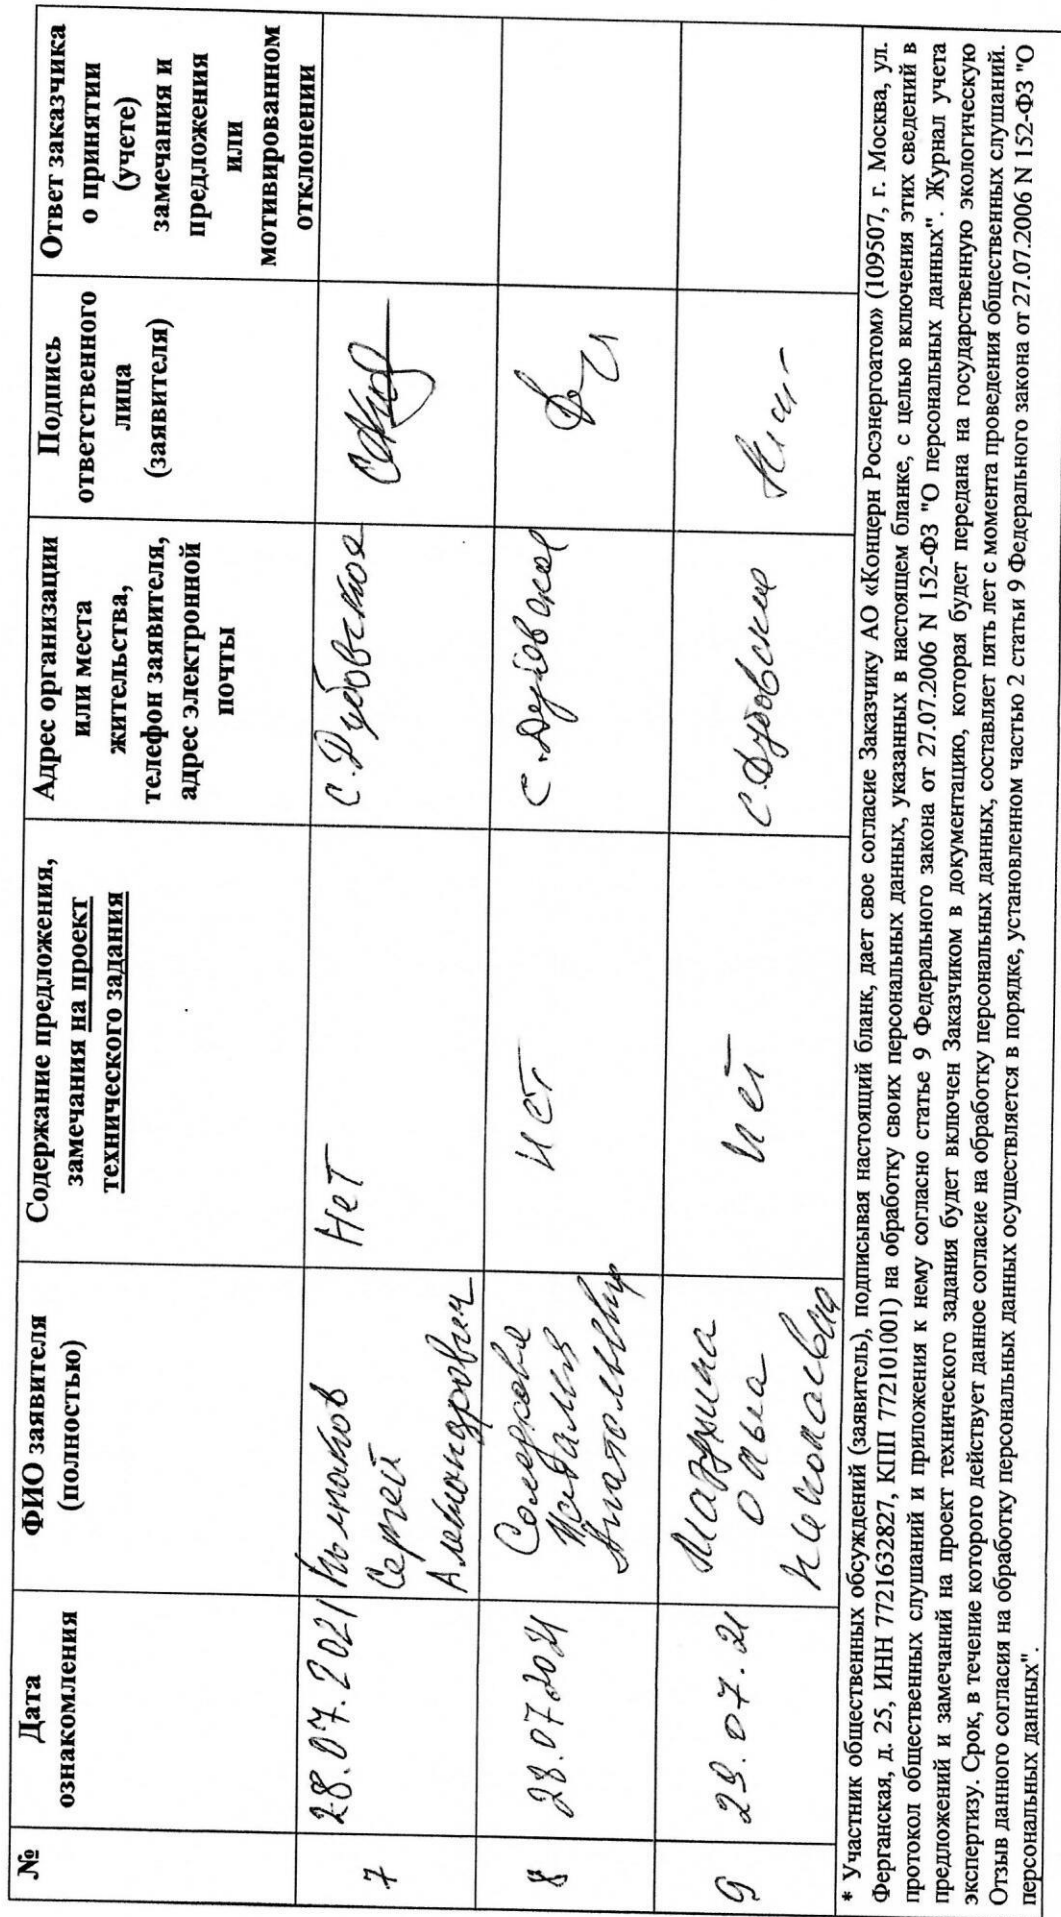 №
Дата
ознакомления
ФИО заявителя
(полностью)
Содержание предложения,
замечания на проект
технического задания
Адрес организации
или места
жительства,
телефон заявителя,
адрес электронной
почты
Подпись
ответственного
лица
(заявителя)
Ответ заказчика
о принятии
(учете)
замечания и
предложения
или
мотивированном
отклонении
7
28.07.2021
Сергей
Александрович
Нет
С. Дубовское
8
28.07.2021
Наталья
Анатольевна
нет
С. Дубовское
9
29.07.21
Ольга
Николаевна
нет
С. Дубовское
* Участник общественных обсуждений (заявитель), подписывая настоящий бланк, дает свое согласие Заказчику АО «Концерн Росэнергоатом» (109507, г. Москва, ул.
Ферганская, д. 25, ИНН 7721632827, КПП 772101001) на обработку своих персональных данных, указанных в настоящем бланке, с целью включения этих сведений в
протокол общественных слушаний и приложения к нему согласно статье 9 Федерального закона от 27.07.2006 N 152-ФЗ "О персональных данных". Журнал учета
предложений и замечаний на проект технического задания будет включен Заказчиком в документацию, которая будет передана на государственную экологическую
экспертизу. Срок, в течение которого действует данное согласие на обработку персональных данных, составляет пять лет с момента проведения общественных слушаний.
Отзыв данного согласия на обработку персональных данных осуществляется в порядке, установленном частью 2 статьи 9 Федерального закона от 27.07.2006 N 152-ФЗ "О
персональных данных".